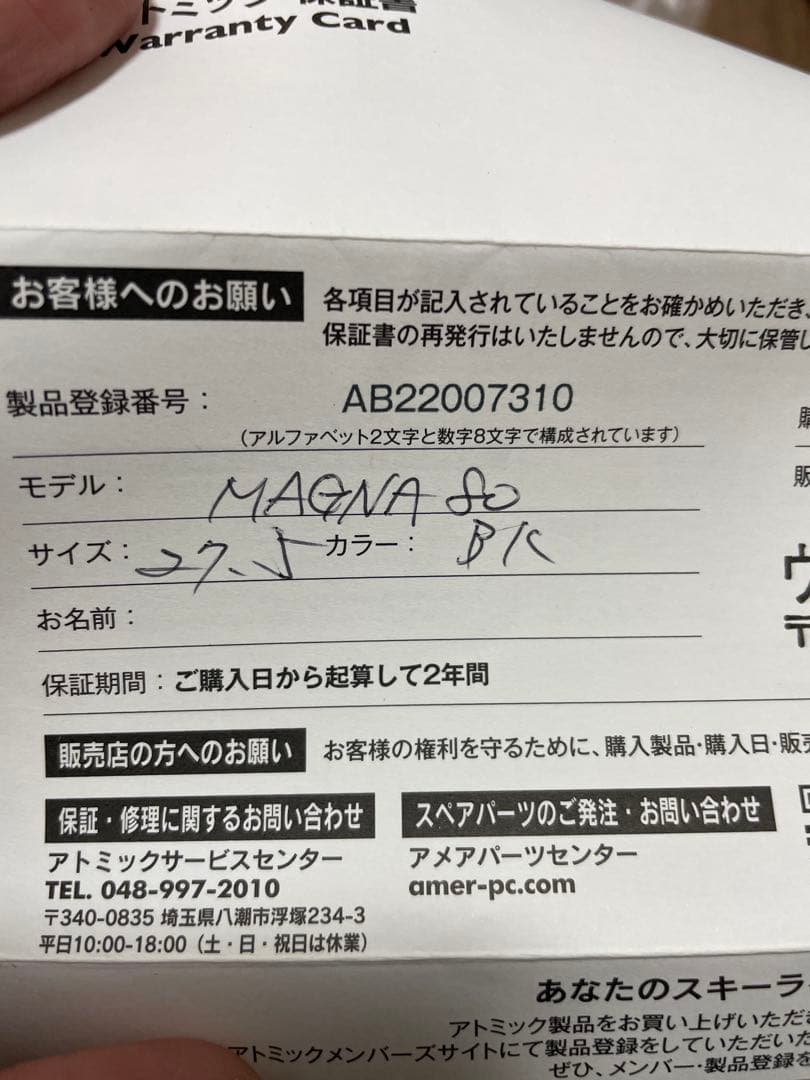 トミック 保証書
Warranty Card
お客様へのお願い
各項目が記入されていることをお確かめいただき、
保証書の再発行はいたしませんので、大切に保管し
製品登録番号： AB22007310
（アルファベット2文字と数字8文字で構成されています）
モデル： MAGNA 80
サイズ： 27.5 カラー： BK
お名前：
保証期間：ご購入日から起算して2年間
販売店の方へのお願い
お客様の権利を守るために、購入製品・購入日・販売
保証・修理に関するお問い合わせ
アトミックサービスセンター
TEL. 048-997-2010
〒340-0835 埼玉県八潮市浮塚234-3
平日10:00-18:00（土・日・祝日は休業）
スペアパーツのご発注・お問い合わせ
アメアパーツセンター
amer-pc.com
販
〒
あなたのスキーラ
アトミック製品をお買い上げいただき
アトミックメンバーズサイトにて製品登録をしていただいた
ぜひ、メンバー・製品登録を